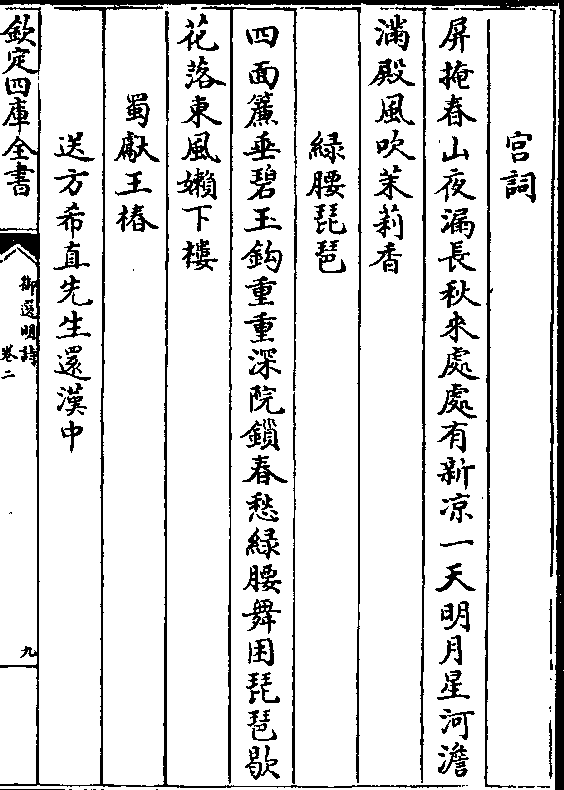 宫詞
屏掩春山夜漏長秋來處處有新凉一天明月星河澹
滿殿風吹茉莉香
緑腰琵琶
四面簾垂碧玉鈎重重深院鎖春愁緑腰舞困琵琶歇
花落東風嬾下樓
蜀獻王椿
送方希直先生還漢中
欽定四庫全書
御選明詩
卷二
九